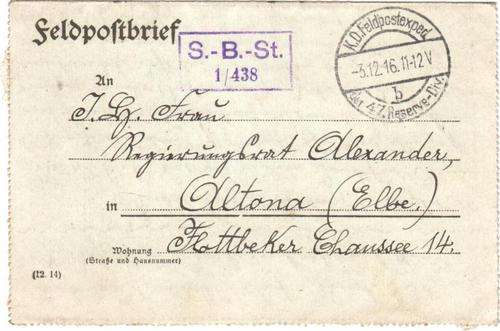 Feldpostbrief
S.-B.-St.
1/438
K.D. Feldpostexped.
-3.12.16.11-12V
b
der 47. Reserve-Div.
An
I. H. Frau
Regierungsrat Alexander,
in Altona (Elbe).
Wohnung Flottbeker Chaussee 14.
(Straße und Hausnummer)
(12. 14)